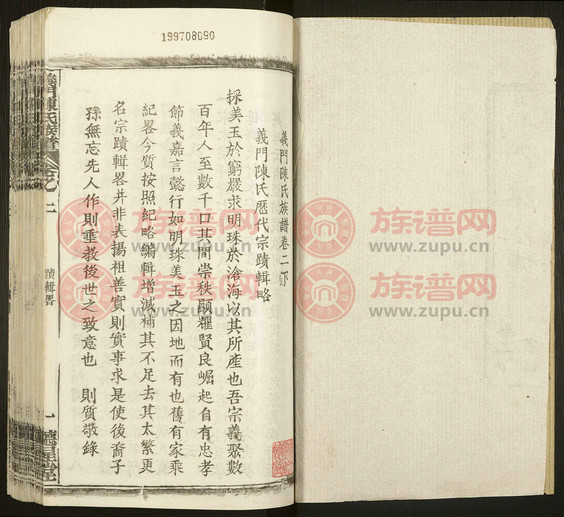 199708090
義門陳氏族譜卷二下
義門陳氏歷代宗蹟輯略
採美玉於窮巖求明珠於滄海以其所產也吾宗義聚數
百年人至數千口其間崇秩顯耀賢良崛起自有忠孝
節義嘉言懿行如明珠美玉之因地而有也舊有家乘
紀畧今質按照紀略編輯增減補其不足去其太繁更
名宗蹟輯畧并非表揚祖善實則實事求是使後裔子
孫無忘先人作則垂教後世之致意也 則質敬錄
義門陳氏族譜
卷之二
蹟輯畧
一
族谱网
www.zupu.cn
族谱网
www.zupu.cn
族谱网
www.zupu.cn
族谱网
www.zupu.cn